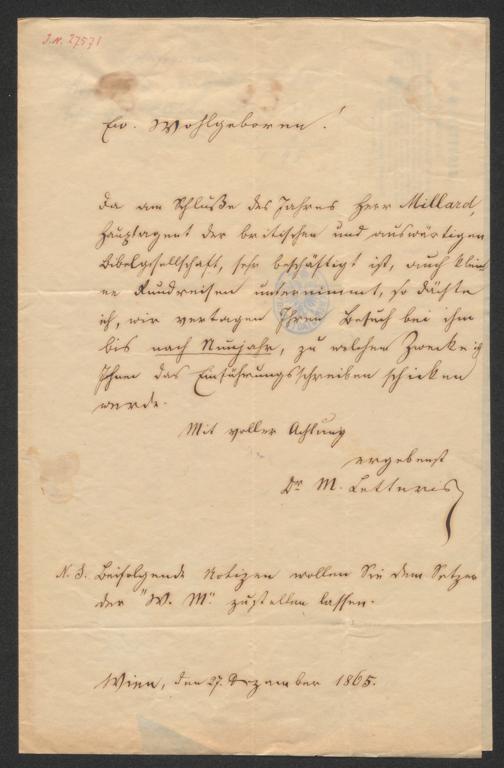 J.N. 27531
Ew. Wohlgeboren!
Da am Schluße des Jahres Herr Millard,
Hauptagent der britischen und auswärtigen
Bibelgesellschaft, sehr beschäftigt ist, auch klei-
ne Rundreisen unternimmt, so dächte
ich, wir vertagen Ihren Besuch bei ihm
bis nach Neujahr, zu welchem Zwecke ich
Ihnen das Einführungsschreiben schicken
werde.
Mit voller Achtung
ergebenst
Dr M. Letteris
N. S. Beifolgende Notizen wollen Sie dem Setzer
der "W. M." zustellen lassen.
Wien, den 27. Dezember 1865.